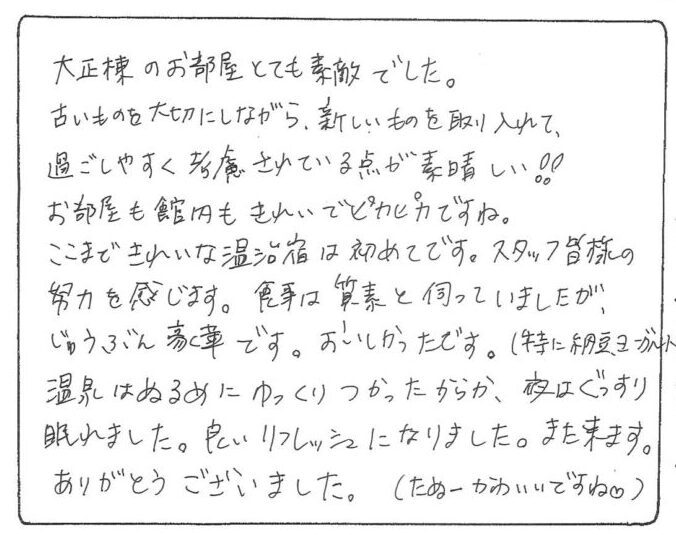 大正棟のお部屋とても素敵でした。
古いものを大切にしながら、新しいものを取り入れて、
過ごしやすく考慮されている点が素晴しい!!
お部屋も館内もきれいでピカピカですね。
ここまできれいな湯治宿は初めてです。スタッフ皆様の
努力を感じます。食事は質素と伺っていましたが、
じゅうぶん豪華です。おいしかったです。(特に納豆、ヨーグルト
温泉はぬるめにゆっくりつかったからか、夜はぐっすり
眠れました。良いリフレッシュになりました。また来ます。
ありがとうございました。(たぬーかわいいですね♡)